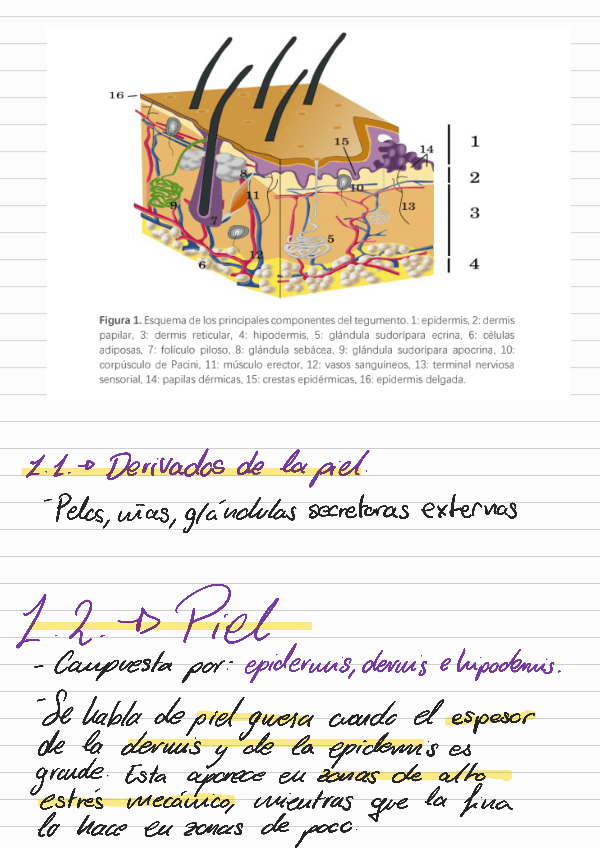 16
15
14
1
8
10
2
11
9
13
3
7
5
12
6
4
Figura 1. Esquema de los principales componentes del tegumento. 1: epidermis, 2: dermis
papilar, 3: dermis reticular, 4: hipodermis, 5: glándula sudorípara ecrina, 6: células
adiposas, 7: folículo piloso, 8: glándula sebácea, 9: glándula sudorípara apocrina, 10:
corpúsculo de Pacini, 11: músculo erector, 12: vasos sanguíneos, 13: terminal nerviosa
sensorial, 14: papilas dérmicas, 15: crestas epidérmicas, 16: epidermis delgada.
1.1.→ Derivados de la piel.
- Pelos, uñas, glándulas secretoras externas
1.2.→ Piel
- Compuesta por: epidermis, dermis e hipodermis.
- Se habla de piel gruesa cuando el espesor
de la dermis y de la epidermis es
grande. Esta aparece en zonas de alto
estrés mecánico, mientras que la fina
lo hace en zonas de poco.